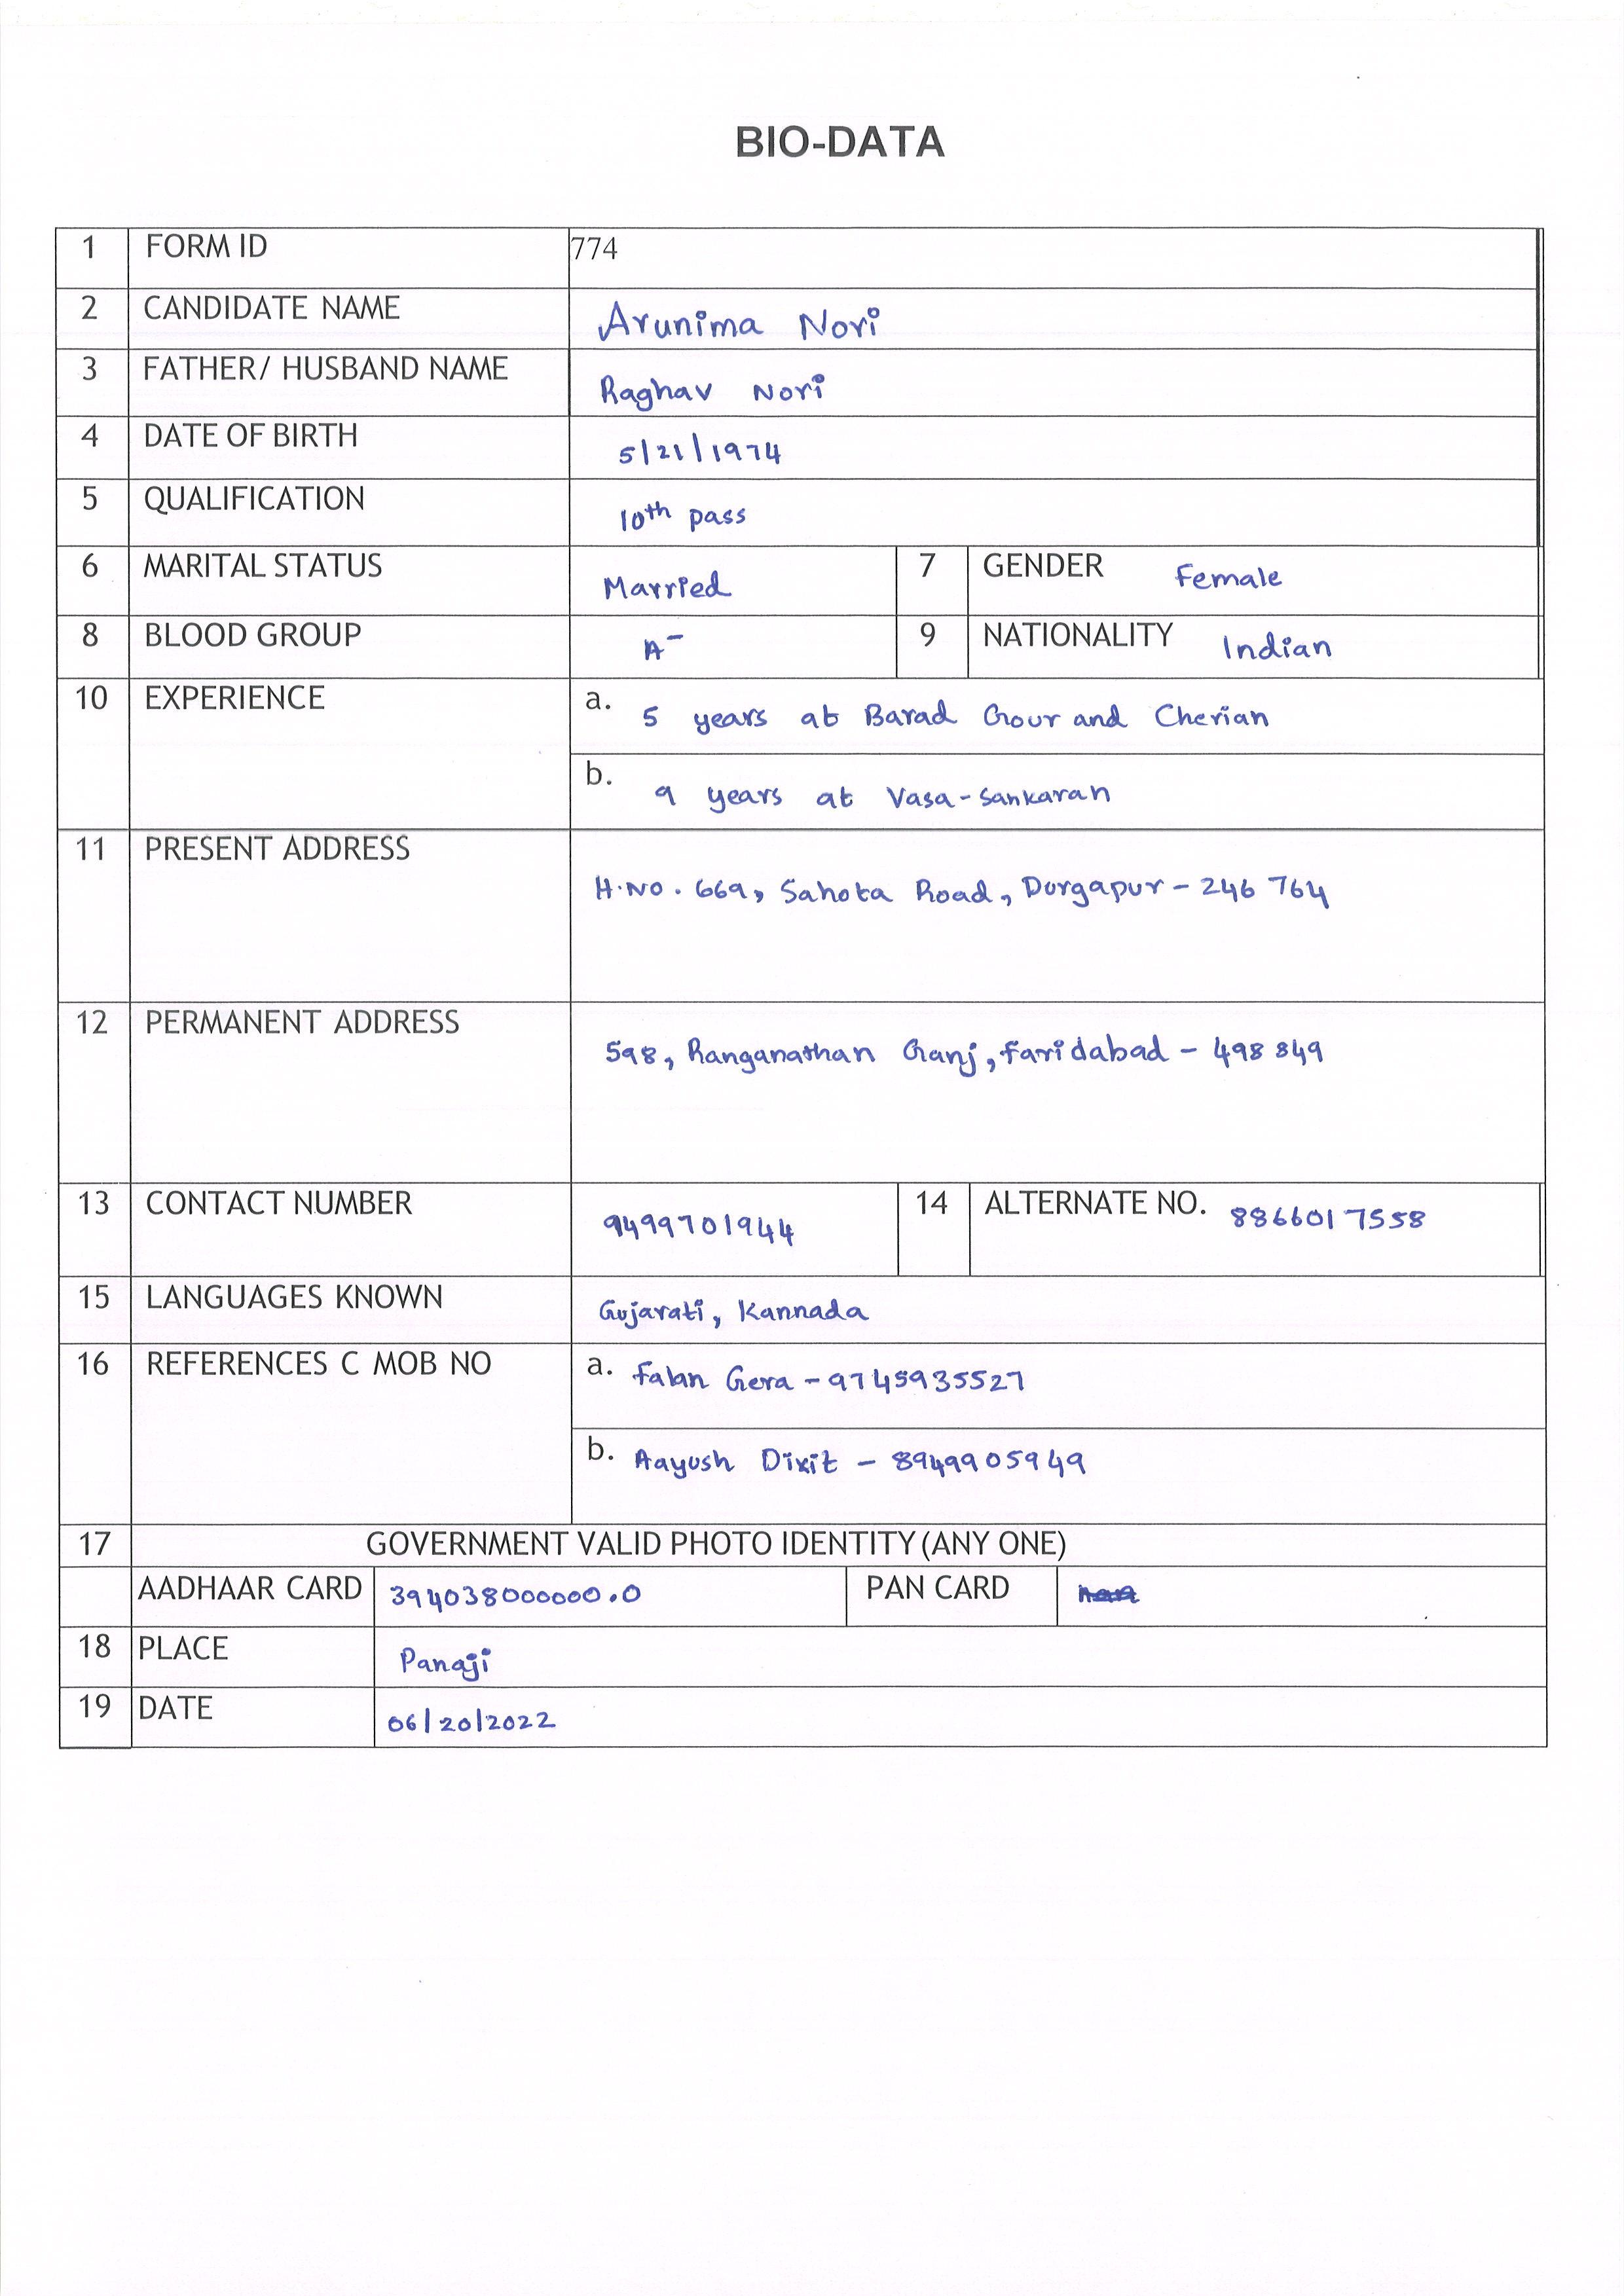 BIO-DATA
1 FORM ID 774
2 CANDIDATE NAME Arunima Nori
3 FATHER/ HUSBAND NAME Raghav Nori
4 DATE OF BIRTH 5/21/1974
5 QUALIFICATION 10th pass
6 MARITAL STATUS Married 7 GENDER Female
8 BLOOD GROUP A- 9 NATIONALITY Indian
10 EXPERIENCE a. 5 years at Barad Gour and Cherian
b. 9 years at Vasa-Sankaran
11 PRESENT ADDRESS
H.NO. 669, Sahota Road, Durgapur - 246 764
12 PERMANENT ADDRESS
598, Ranganathan Ganj, Faridabad - 498 849
13 CONTACT NUMBER 9499701944 14 ALTERNATE NO. 8866017558
15 LANGUAGES KNOWN Gujarati, Kannada
16 REFERENCES C MOB NO a. Falan Gera - 9745935527
b. Aayush Dixit - 8949905949
17 GOVERNMENT VALID PHOTO IDENTITY (ANY ONE)
AADHAAR CARD 394038000000.0 PAN CARD
18 PLACE Panaji
19 DATE 06/20/2022